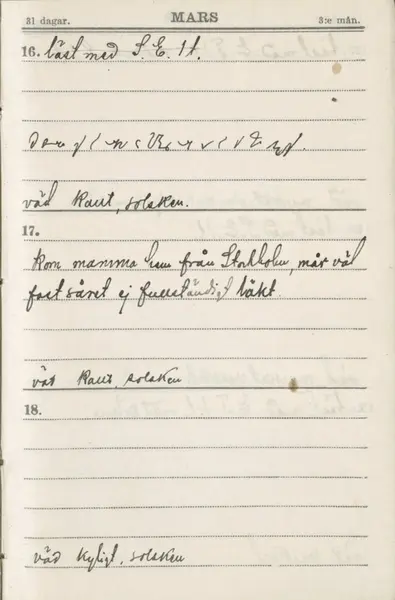 31 dagar. MARS 3:e mån.
16. läst med S. E. 1 t.
väd Kallt, solsken.
17.
Kom mamma hem från Stockholm, mår väl
fast såret ej fullständigt läkt.
väd Kallt, solsken
18.
väd kyligt, solsken